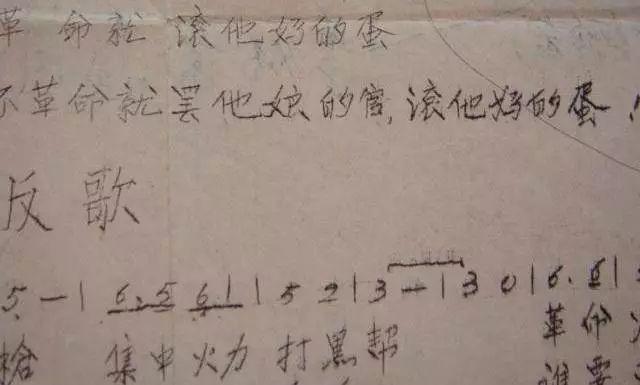 革命就滚他妈的蛋
不革命就罢他娘的官,滚他妈的蛋!
反歌
5 — | 6.5 61 | 5 2 | 3 — | 3 0 | 6. 6 |
枪 集中 火力 打黑帮 革命
谁要